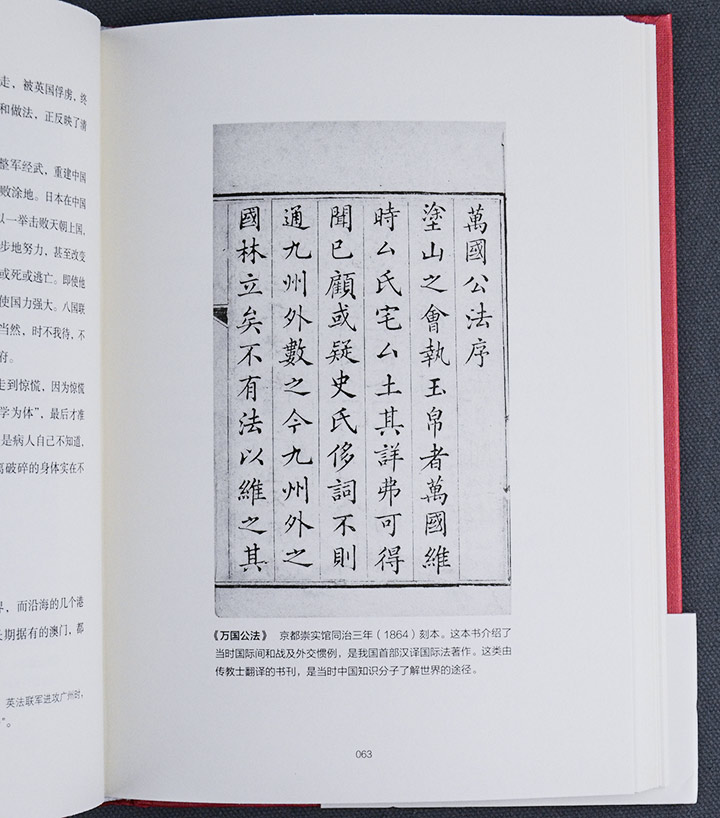 走，被英国俘虏，终
和做法，正反映了清
整军经武，重建中国
败涂地。日本在中国
以一举击败天朝上国，
步地努力，甚至改变
或死或逃亡。即使他
使国力强大。八国联
当然，时不我待，不
府。
走到惊慌，因为惊慌
学为体”，最后才准
是病人自己不知道、
破碎的身体实在不
界，而沿海的几个港
长期据有的澳门，都
英法联军进攻广州时，
”。
萬國公法序
塗山之會執玉帛者萬國維
時厶氏宅厶土其詳弗可得
聞已顧或疑史氏侈詞不則
通九州外數之今九州外之
國林立矣不有法以維之其
《万国公法》 京都崇实馆同治三年（1864）刻本。这本书介绍了
当时国际间和战及外交惯例，是我国首部汉译国际法著作。这类由
传教士翻译的书刊，是当时中国知识分子了解世界的途径。
063